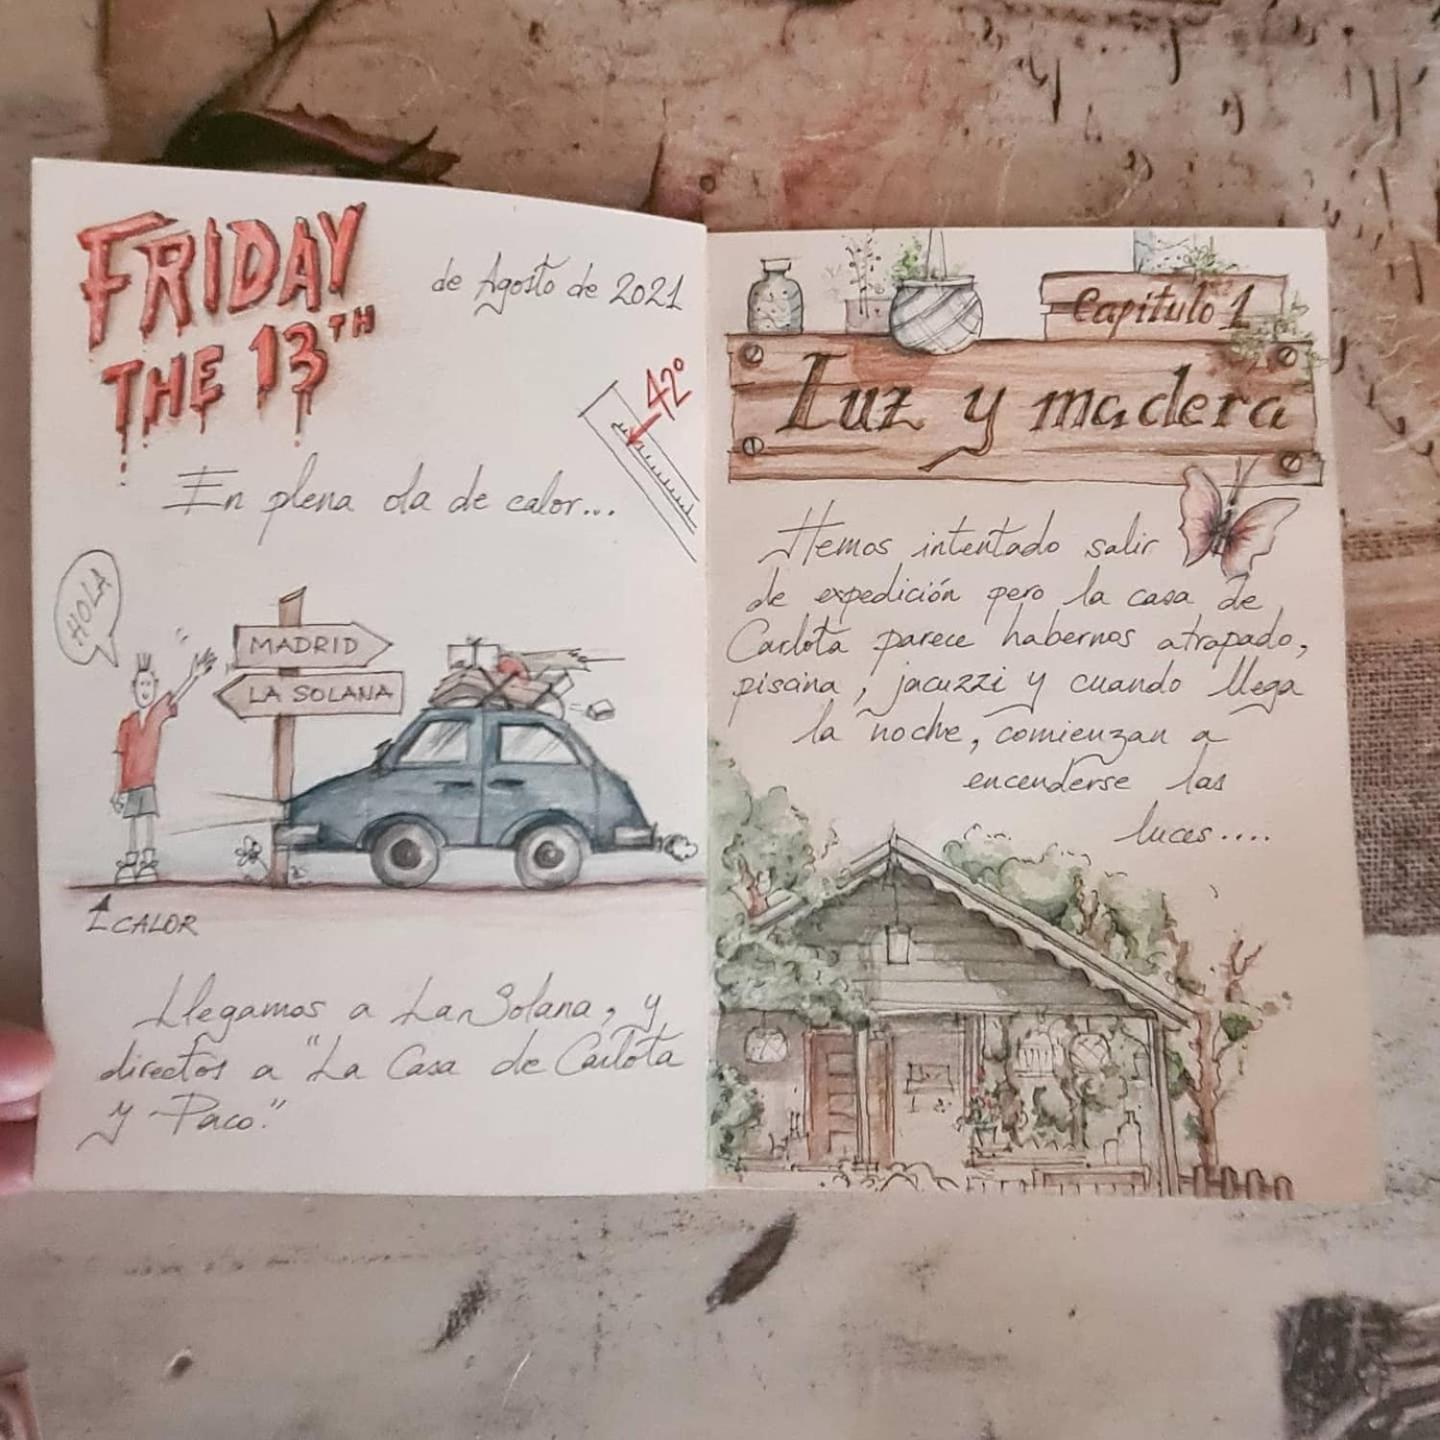 FRIDAY
THE 13TH
de Agosto de 2021
42º
En plena ola de calor...
HOLA
MADRID
LA SOLANA
CALOR
Llegamos a La Solana, y
directos a "La Casa de Carlota
y Paco."
Capitulo 1
Luz y madera
Hemos intentado salir
de expedición pero la casa de
Carlota parece habernos atrapado,
piscina, jacuzzi y cuando llega
la noche, comienzan a
encenderse las
luces....